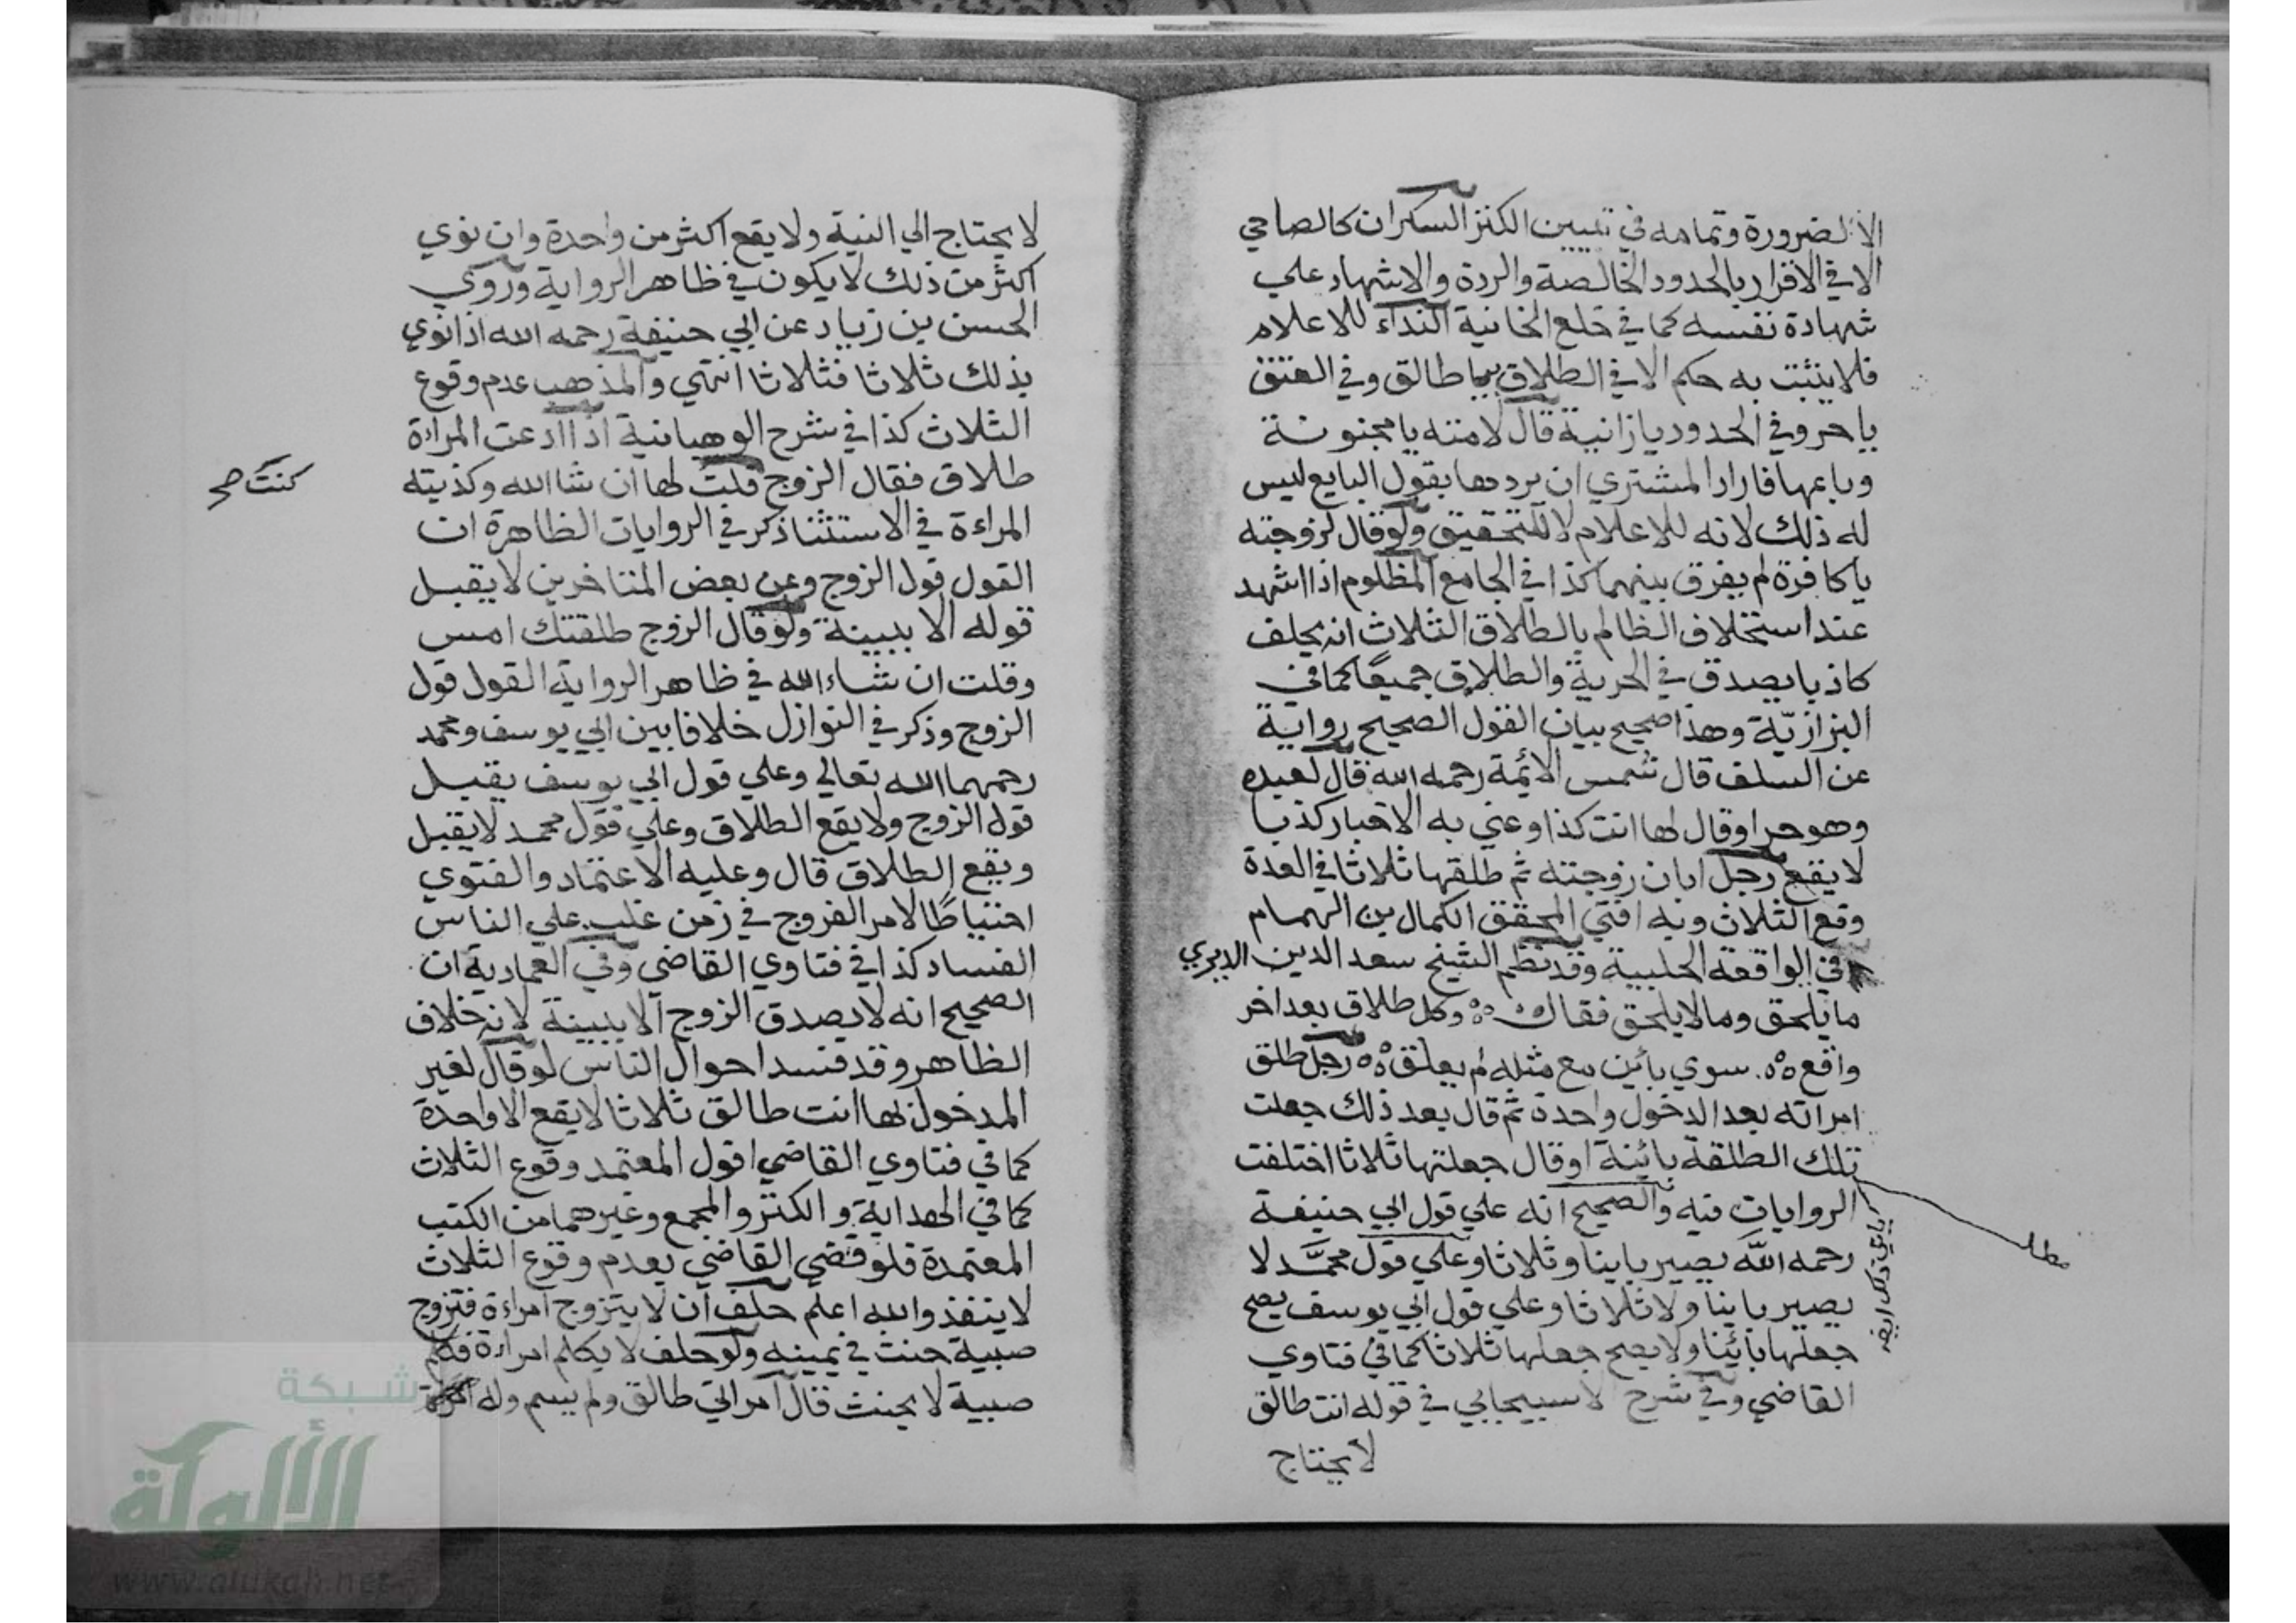 الا لضرورة وتمامه في تبيين الكنز السكران كالصاحي
الا في الاقرار بالحدود الخالصة والردة والاشهاد علي
شهادة نفسه كما في خلع الخانية النداء للاعلام
فلا يثبت به حكم الا في الطلاق بيا طالق وفي العتق
يا حر وفي الحدود يا زانية قال لامته يا مجنونة
وباعها فاراد المشتري ان يردها بقول البايع ليس
له ذلك لانه للاعلام لا للتحقيق ولو قال لزوجته
يا كافرة لم يفرق بينهما كذا في الجامع المظلوم اذا اشهد
عند استحلاف الظالم بالطلاق الثلاث انه يحلف
كاذبا يصدق في الحرية والطلاق جميعًا كما في
البزازيّة وهذا صحيح بيان القول الصحيح رواية
عن السلف قال شمس الائمة رحمه الله قال لعبده
وهو حر او قال لها انت كذا وعني به الاخبار كذبا
لا يقع رجل ابان زوجته ثم طلقها ثلاثا في العدة
وقع الثلاث وبه افتي المحقق الكمال بن الهمام
في الواقعة الحلبية وقد نظم الشيخ سعد الدين الديري
ما يلحق وما لا يلحق فقال وكل طلاق بعد اخر
واقع سوي بائن مع مثله لم يعلق رجل طلق
امراته بعد الدخول واحدة ثم قال بعد ذلك جعلت
تلك الطلقة بائنة او قال جعلتها ثلاثا اختلفت
الروايات فيه والصحيح انه علي قول ابي حنيفة
رحمه الله يصير باينا وثلاثا وعلي قول محمَّد لا
يصير باينا ولا ثلاثا وعلي قول ابي يوسف يصح
جعلها بائنا ولا يصح جعلها ثلاثا كما في فتاوي
القاضي وفي شرح لاسبيجابي في قوله انت طالق
لا يحتاج
مطلب
لا يحتاج الي النية ولا يقع اكثر من واحدة وان نوي
اكثر من ذلك لا يكون في ظاهر الرواية وروي
الحسن بن زياد عن ابي حنيفة رحمه الله اذا نوي
بذلك ثلاثا فثلاثا انتهي والمذهب عدم وقوع
الثلاث كذا في شرح الوهبانية اذا ادعت المراءة
طلاق فقال الزوج قلت لها ان شا الله وكذبته
كنت صح
المراءة في الاستثنا ذكر في الروايات الظاهرة ان
القول قول الزوج وعن بعض المتاخرين لا يقبل
قوله الا ببينة ولو قال الزوج طلقتك امس
وقلت ان شاء الله في ظاهر الرواية القول قول
الزوج وذكر في النوازل خلافا بين ابي يوسف ومحمد
رحمهما الله تعالي وعلي قول ابي يوسف يقبل
قول الزوج ولا يقع الطلاق وعلي قول محمد لا يقبل
ويقع الطلاق قال وعليه الاعتماد والفتوي
احتياطًا لامر الفروج في زمن غلب علي الناس
الفساد كذا في فتاوي القاضي وفي العمادية ان
الصحيح انه لا يصدق الزوج الا ببينة لانه خلاف
الظاهر وقد فسد احوال الناس لو قال لغير
المدخول بها انت طالق ثلاثا لا يقع الا واحدة
كما في فتاوي القاضي اقول المعتمد وقوع الثلاث
كما في الهداية والكنز والمجمع وغيرهما من الكتب
المعتمدة فلو قضي القاضي بعدم وقوع الثلاث
لا ينفذ والله اعلم حلف ان لا يتزوج امراءة فتزوج
صبية حنث في يمينه ولو حلف لا يكلم امراءة فكلم
صبية لا يحنث قال امراتي طالق ولم يسم وله
شبكة
الألوكة
www.alukah.net